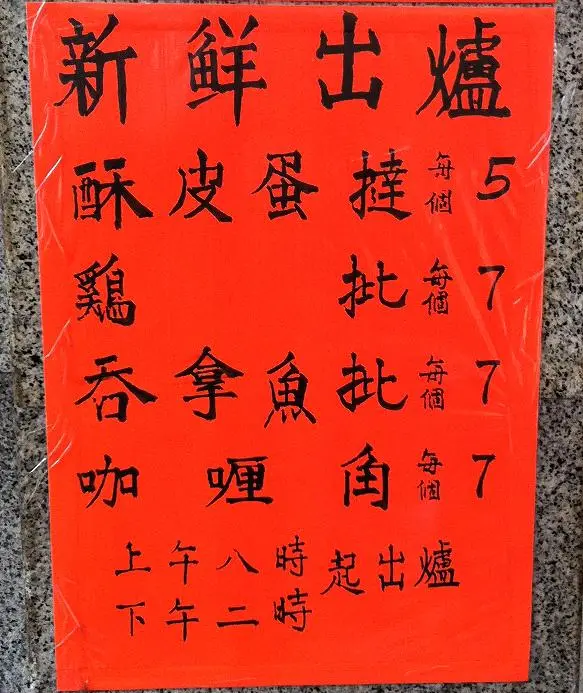 新鮮出爐
酥皮蛋撻 每個 5
鷄批 每個 7
吞拿魚批 每個 7
咖喱角 每個 7
上午八時
下午二時
起出爐